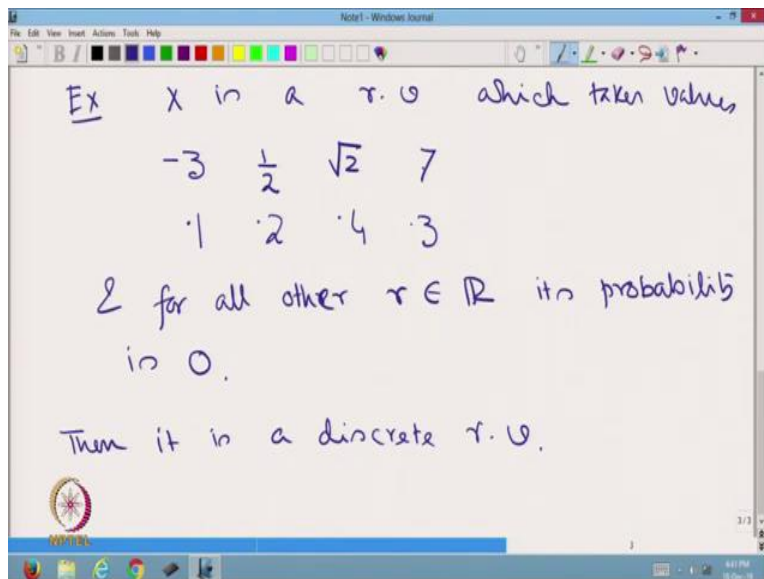 Note1 - Windows Journal
File Edit View Insert Actions Tools Help
Ex X is a r.v which takes values
-3 1/2 √2 7
.1 .2 .4 .3
& for all other r ∈ ℝ its probability
is 0.
Then it is a discrete r.v.
NPTEL
3/3
3
4:41 PM